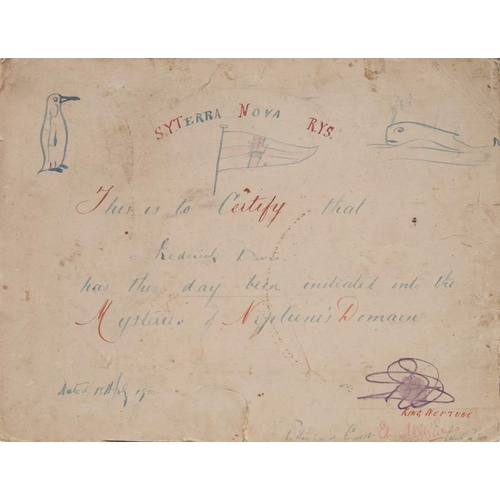 S.Y TERRA NOVA RYS.
This is to Certify that
Frederick
has this day been initiated into the
Mysteries of Neptune's Domain
Dated 15th July 19
KING NEPTUNE